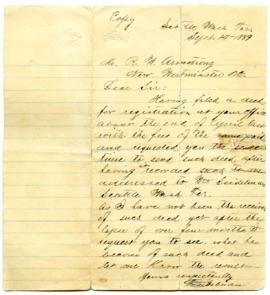 Copy
Seattle Wash Terr
Sept 25 1889
Mr. R. W. Armstrong
New Westminster BC.
Dear Sir:
Having filed a deed
for registration at your office
about the end of April last
with the fees of the same paid
and requested you the same
time to send such deed after
having recorded such to me
addressed to Wm
Seattle Wash Tr:
As I have not been the receiver
of such deed yet after the
lapse of over four months I
request you to see what has
become of such deed and
let me know the result
Yours respectfully